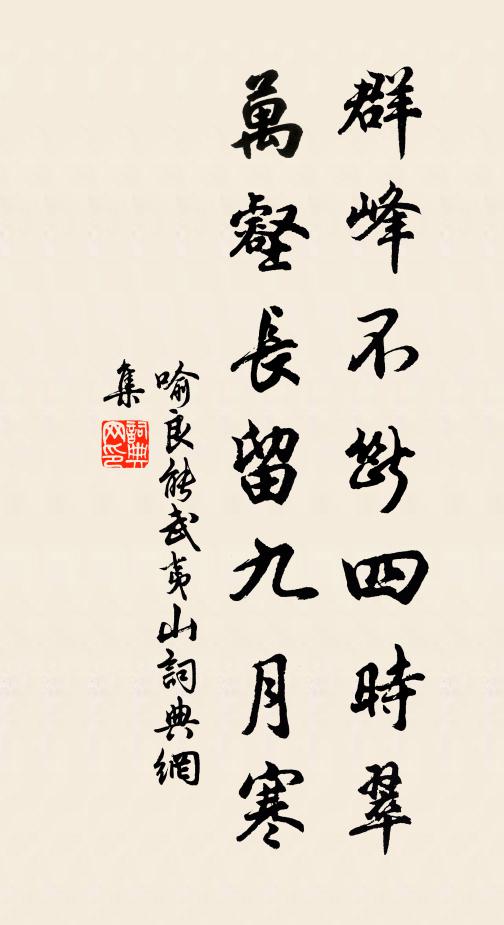 群峰不斷四時翠
萬壑長留九月寒
喻良能武夷山詞典網
集
詞典網印